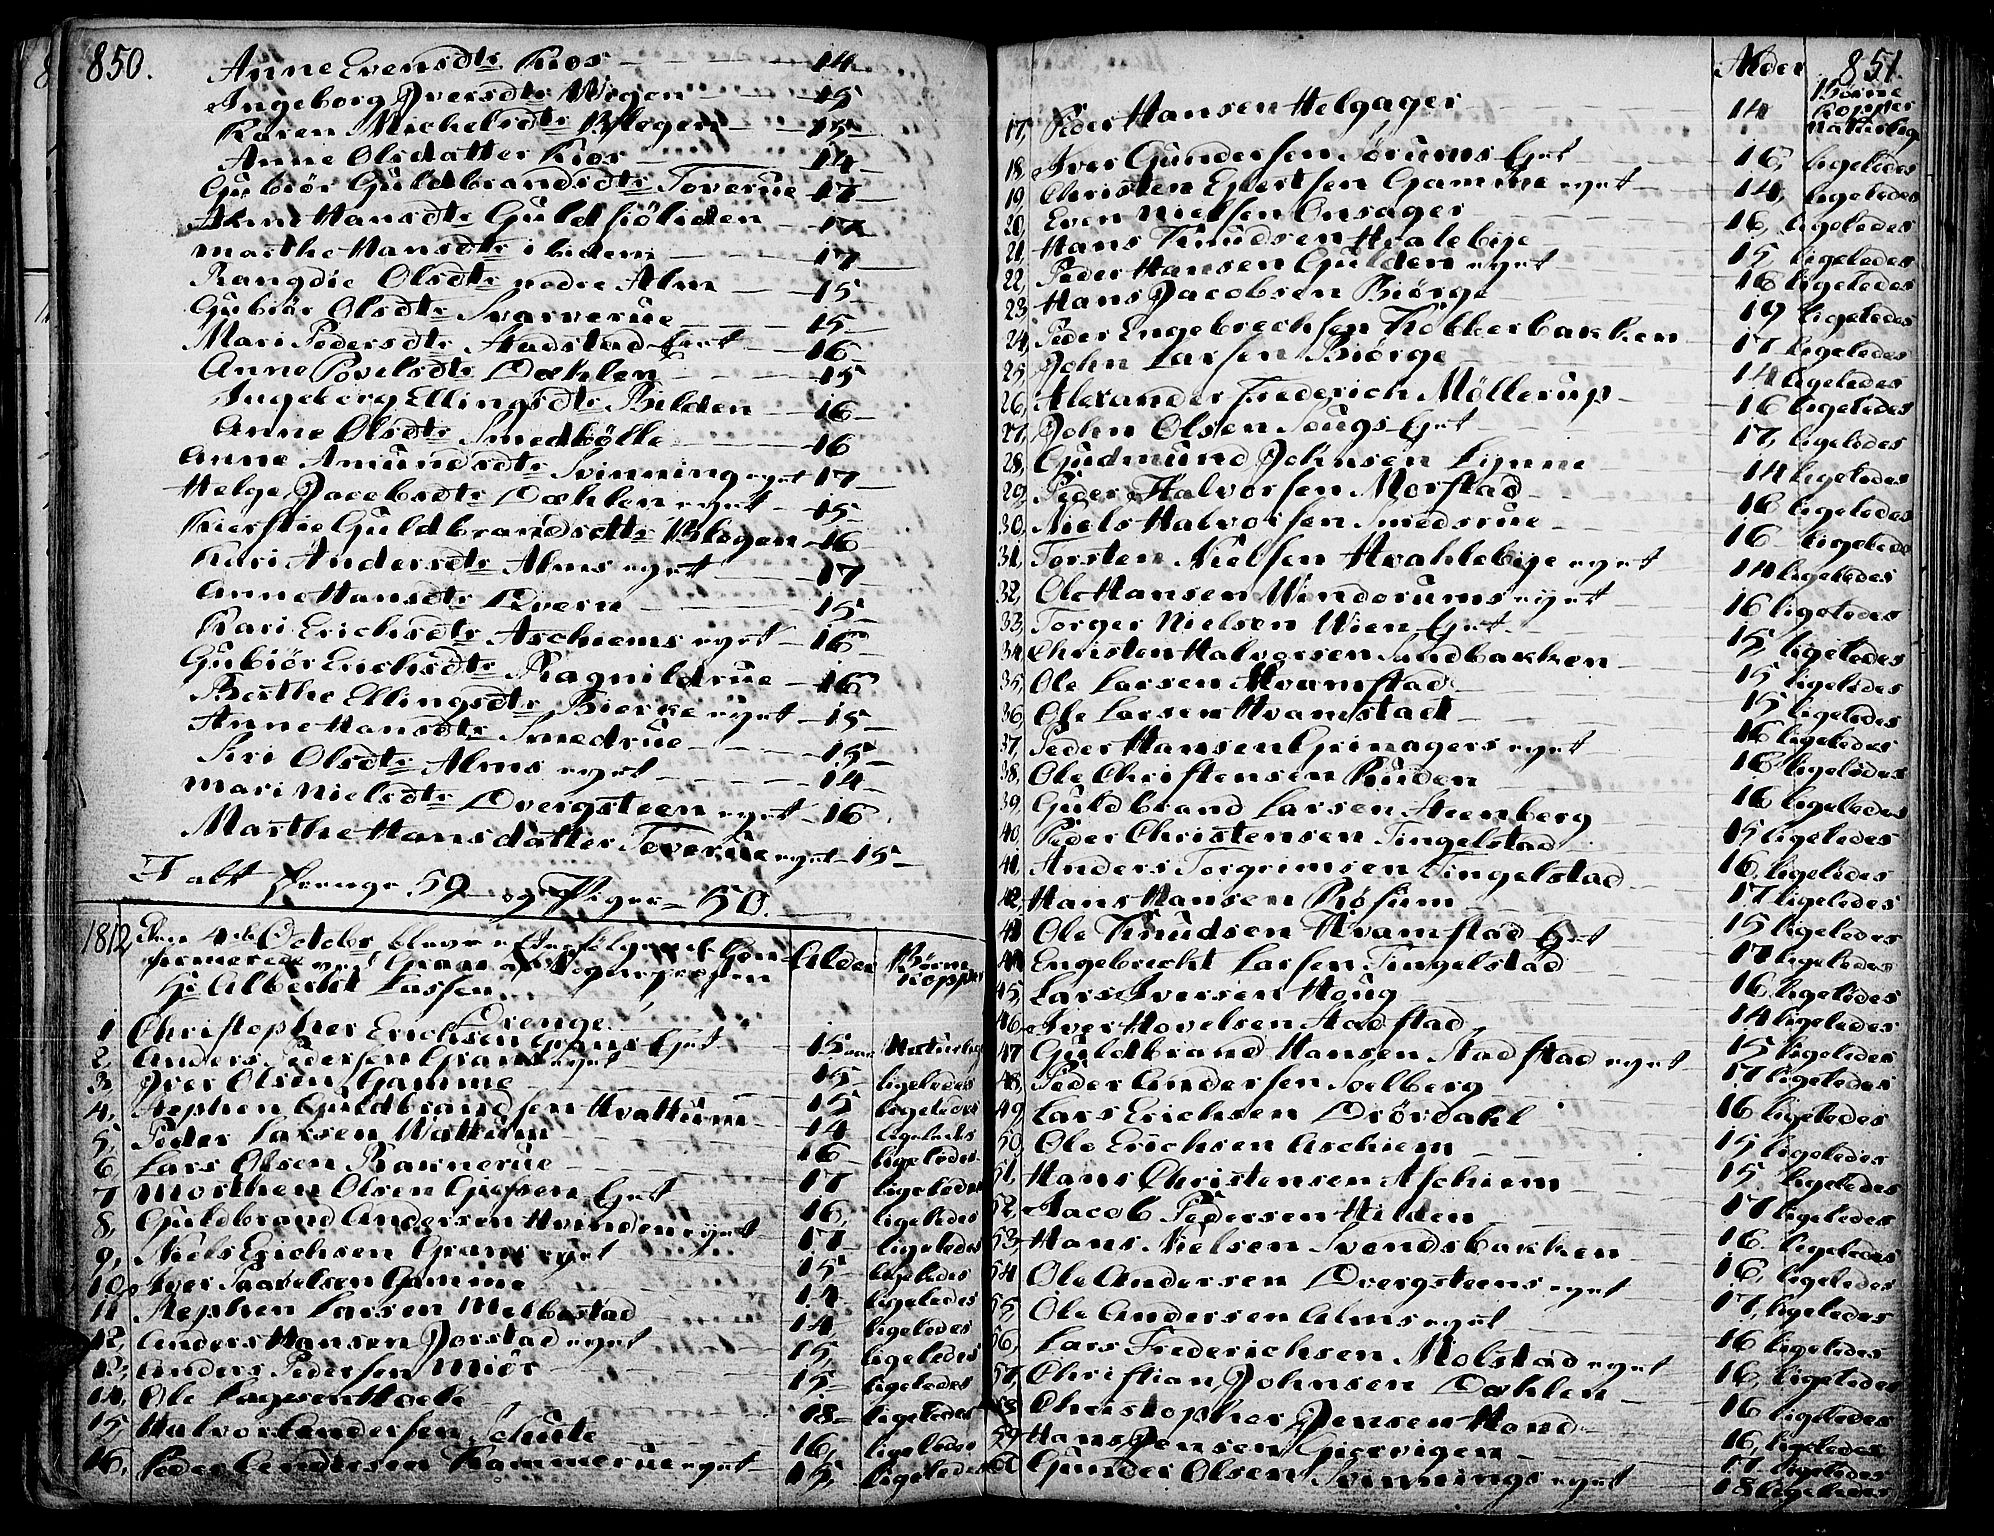 850.
Anne Evensdtr Røos 14
Ingeborg Iversdtr Wegen 15
Karen Michelsdtr Blegen 15
Anne Olsdatter Røos 14
Gubiör Guldbrandsdtr Toverue 17
Anne Hansdtr Guldsiöliden 17
Marthe Hansdtr i Liden 17
Rangdie Olsdtr nedre Alm 15
Gubiör Olsdtr Svarverue 15
Mari Pedersdtr Stadstad Eyet 16
Anne Povelsdtr Dæhlen 15
Ingeborg Ellingsdtr Bilden 16
Anne Olsdtr Smedbölle 16
Anne Amundsdtr Svinning eyet 17
Helge Jacobsdtr Dæhlen eyet 15
Kierstie Guldbrandsdttr Blegen 16
Kari Andersdtr Alms eyet 17
Anne Hansdtr Dvern 15
Kari Erichsdtr Aschiems eyet 16
Gubiör Erichsdtr Ragnildrue 16
Berthe Ellingsdtr Bierke eyet 15
Anne Hansdtr Smedrue 15
Siri Olsdtr Alms eyet 14
Mari Nielsdtr Dvergsteen eyet 16
Marthe Hansdatter Toverue eyet 15
I alt Drenge 59 og Piger 50.
1812 Den 4de Octobr bleve efterfølgende Con-
firmerede ved Gran af Sognepresten
Hr Albert Lassen. Alder Børne Kopper
Drenge
1 Christopher Erichsen Grans Eyet 15 aar Naturlig
2, Anders Pedersen Grans eyet 15 ligeledes
3, Iver Olsen Gamme 15 ligeledes
4, Stephen Guldbrandsen Hvattum 14 ligeledes
5, Peder Larsen Wattum 16 ligeledes
6, Lars Olsen Rannerue 17 ligeledes
7, Morthen Olsen Gjefsen Eyet 16, ligeledes
8, Guldbrand Andersen Hvinden eyet 17 ligeledes
9, Niels Erichsen Grans eyet 15 ligeledes
10, Iver Paavelsen Gamme 14 ligeledes
11 Stephen Larsen Melbøstad 14, ligeledes
12, Anders Hansen Jorstad eyet 15, ligeledes
13, Anders Pedersen Miör 15 ligeledes
14, Ole Hoele 18 ligeledes
15, Halvor Andersen Schute 16, ligeledes
16, Peder Andersen Kammerue eyet 15, ligeledes
Alder 851.
Børne Kopper
17, Peder Hansen Helgager 14 naturlig
18, Iver Gundersen Sørums Eyet 16, ligeledes
19, Christen Evertsen Gamme eyet 14, ligeledes
20, Even Nielsen Onsager 16, ligeledes
21, Hans Knudsen Hvalebye 15 ligeledes
22, Peder Hansen Gulden eyet 16 ligeledes
23, Hans Jacobsen Biörge 19 ligeledes
24, Peder Engebrechtsen Kobberbakken 17 ligeledes
25, John Larsen Biörge 14 ligeledes
26, Alexander Frederich Möllerup 16 ligeledes
27, John Olsen Sougs Eyet 17, ligeledes
28, Gudmund Johnsen Lynne 14 ligeledes
29, Peder Halvorsen Morstad 16 ligeledes
30, Niels Halvorsen Smedsrue 16 ligeledes
31, Torsten Nielsen Hvahlebye eyet 14 ligeledes
32, Ole Hansen Windorums eyet 16 ligeledes
33, Torger Nielsen Wien Eyet 15, ligeledes
34, Christen Halvorsen Sandbakken 15 ligeledes
35, Ole Larsen Hvamstad 15 ligeledes
36, Ole Larsen Hvamstad 16 ligeledes
37, Peder Hansen Grinagers eyet 16 ligeledes
38, Ole Christensen Ruden 16 ligeledes
39, Guldbrand Larsen Steenberg 15 ligeledes
40, Peder Christensen Tingelstad 16, ligeledes
41, Anders Torgrimsen Tingelstad 17 ligeledes
42, Hans Hansen Røsum 15 ligeledes
43 Ole Knudsen Hvamstad Eyet 17 ligeledes
44 Engebrecht Larsen Tingelstad 16 ligeledes
45, Lars Iversen Houg 14 ligeledes
46, Iver Hovelsen Stadstad 15 ligeledes
47 Guldbrand Hansen Stadstad eyet 17 ligeledes
48, Peder Andersen Soelberg 16 ligeledes
49, Lars Erichsen Drördahl 15 ligeledes
50, Ole Erichsen Aschiem 15 ligeledes
51, Hans Christensen Aschiem 17 ligeledes
52, Jacob Pedersen Hilden 16 ligeledes
53, Hans Nielsen Svendsbakken 16, ligeledes
54 Ole Andersen Dvergsteens eyet 17, ligeledes
55, Ole Andersen Alms eyet 16 ligeledes
56, Lars Frederichsen Molstad eyet 16, ligeledes
57 Christian Johnsen Dæhlen 16 ligeledes
58 Christopher Jensen Hond 16, ligeledes
59 Hans Jensen Gjervigen 17 ligeledes
60 Gunder Olsen Svinnings eyet 18 ligeledes